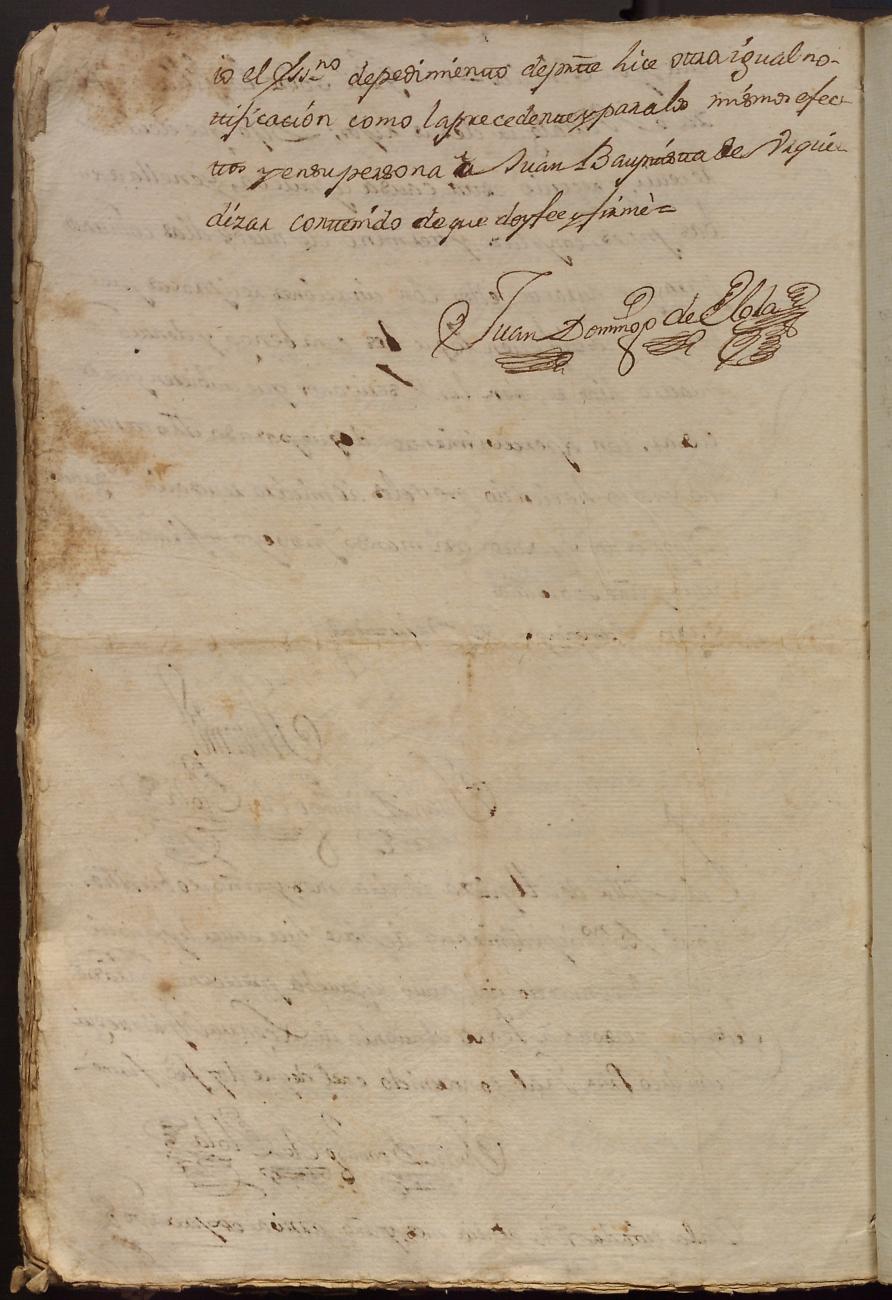 io el Ess.no de pedimiento de p.te hice otra igual no-
tificación como la precedente y para los mismos efec-
ttos y en su persona a Juan Baupttistta de Vrquie-
dizar conttenido de que doy fee y firmè =
Juan Domingo de Elola